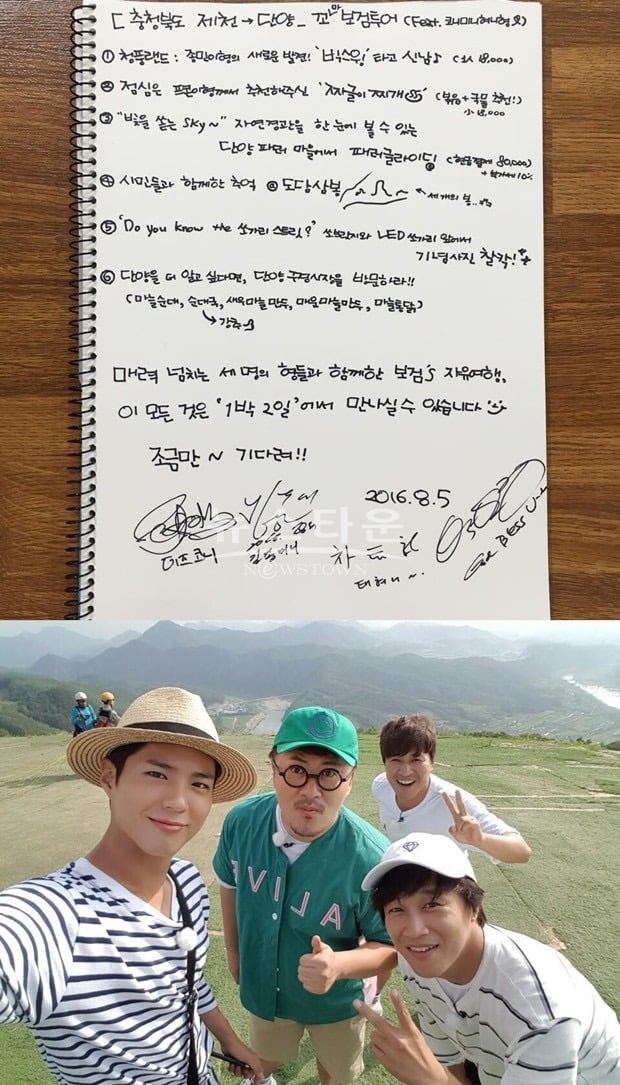 [ 충청북도 제천 → 단양_ 꼬마보검투어 (Feat. 코니미니허니형 옷)
① 청풍랜드 : 종민이형의 새로운 발견! '빅스윙' 타고 신남♪ (1人 18,000)
② 점심은 프콘이형께서 추천해주신 '짜글이찌개' (볶음+국물 추천!)
小 18,000
③ "빛을 쏟는 Sky~" 자연경관을 한 눈에 볼 수 있는
단양 파러 마을에서 패러글라이딩! (현금결제 80,000)
+ 부가세 10%
④ 시민들과 함께한 추억 @ 도담삼봉 ← 세 개의 봉..
⑤ 'Do you know the 쏘가리 스트릿?' 쏘브릿지와 LED 쏘가리 앞에서
기념사진 찰칵!
⑥ 단양을 더 알고 싶다면, 단양 구경시장을 방문하라!!
(마늘순대, 순대국, 새우마늘만두, 매운마늘만두, 마늘통닭)
↳ 강추
매력 넘치는 세 명의 형들과 함께한 보검's 자유여행.
이 모든 것은 '1박 2일'에서 만나실 수 있습니다
조금만 ~ 기다려!!
2016.8.5
데프코니
차태현
태혀니~.
God BLESS U~
뉴스타운
NEWSTOWN
ALIVE